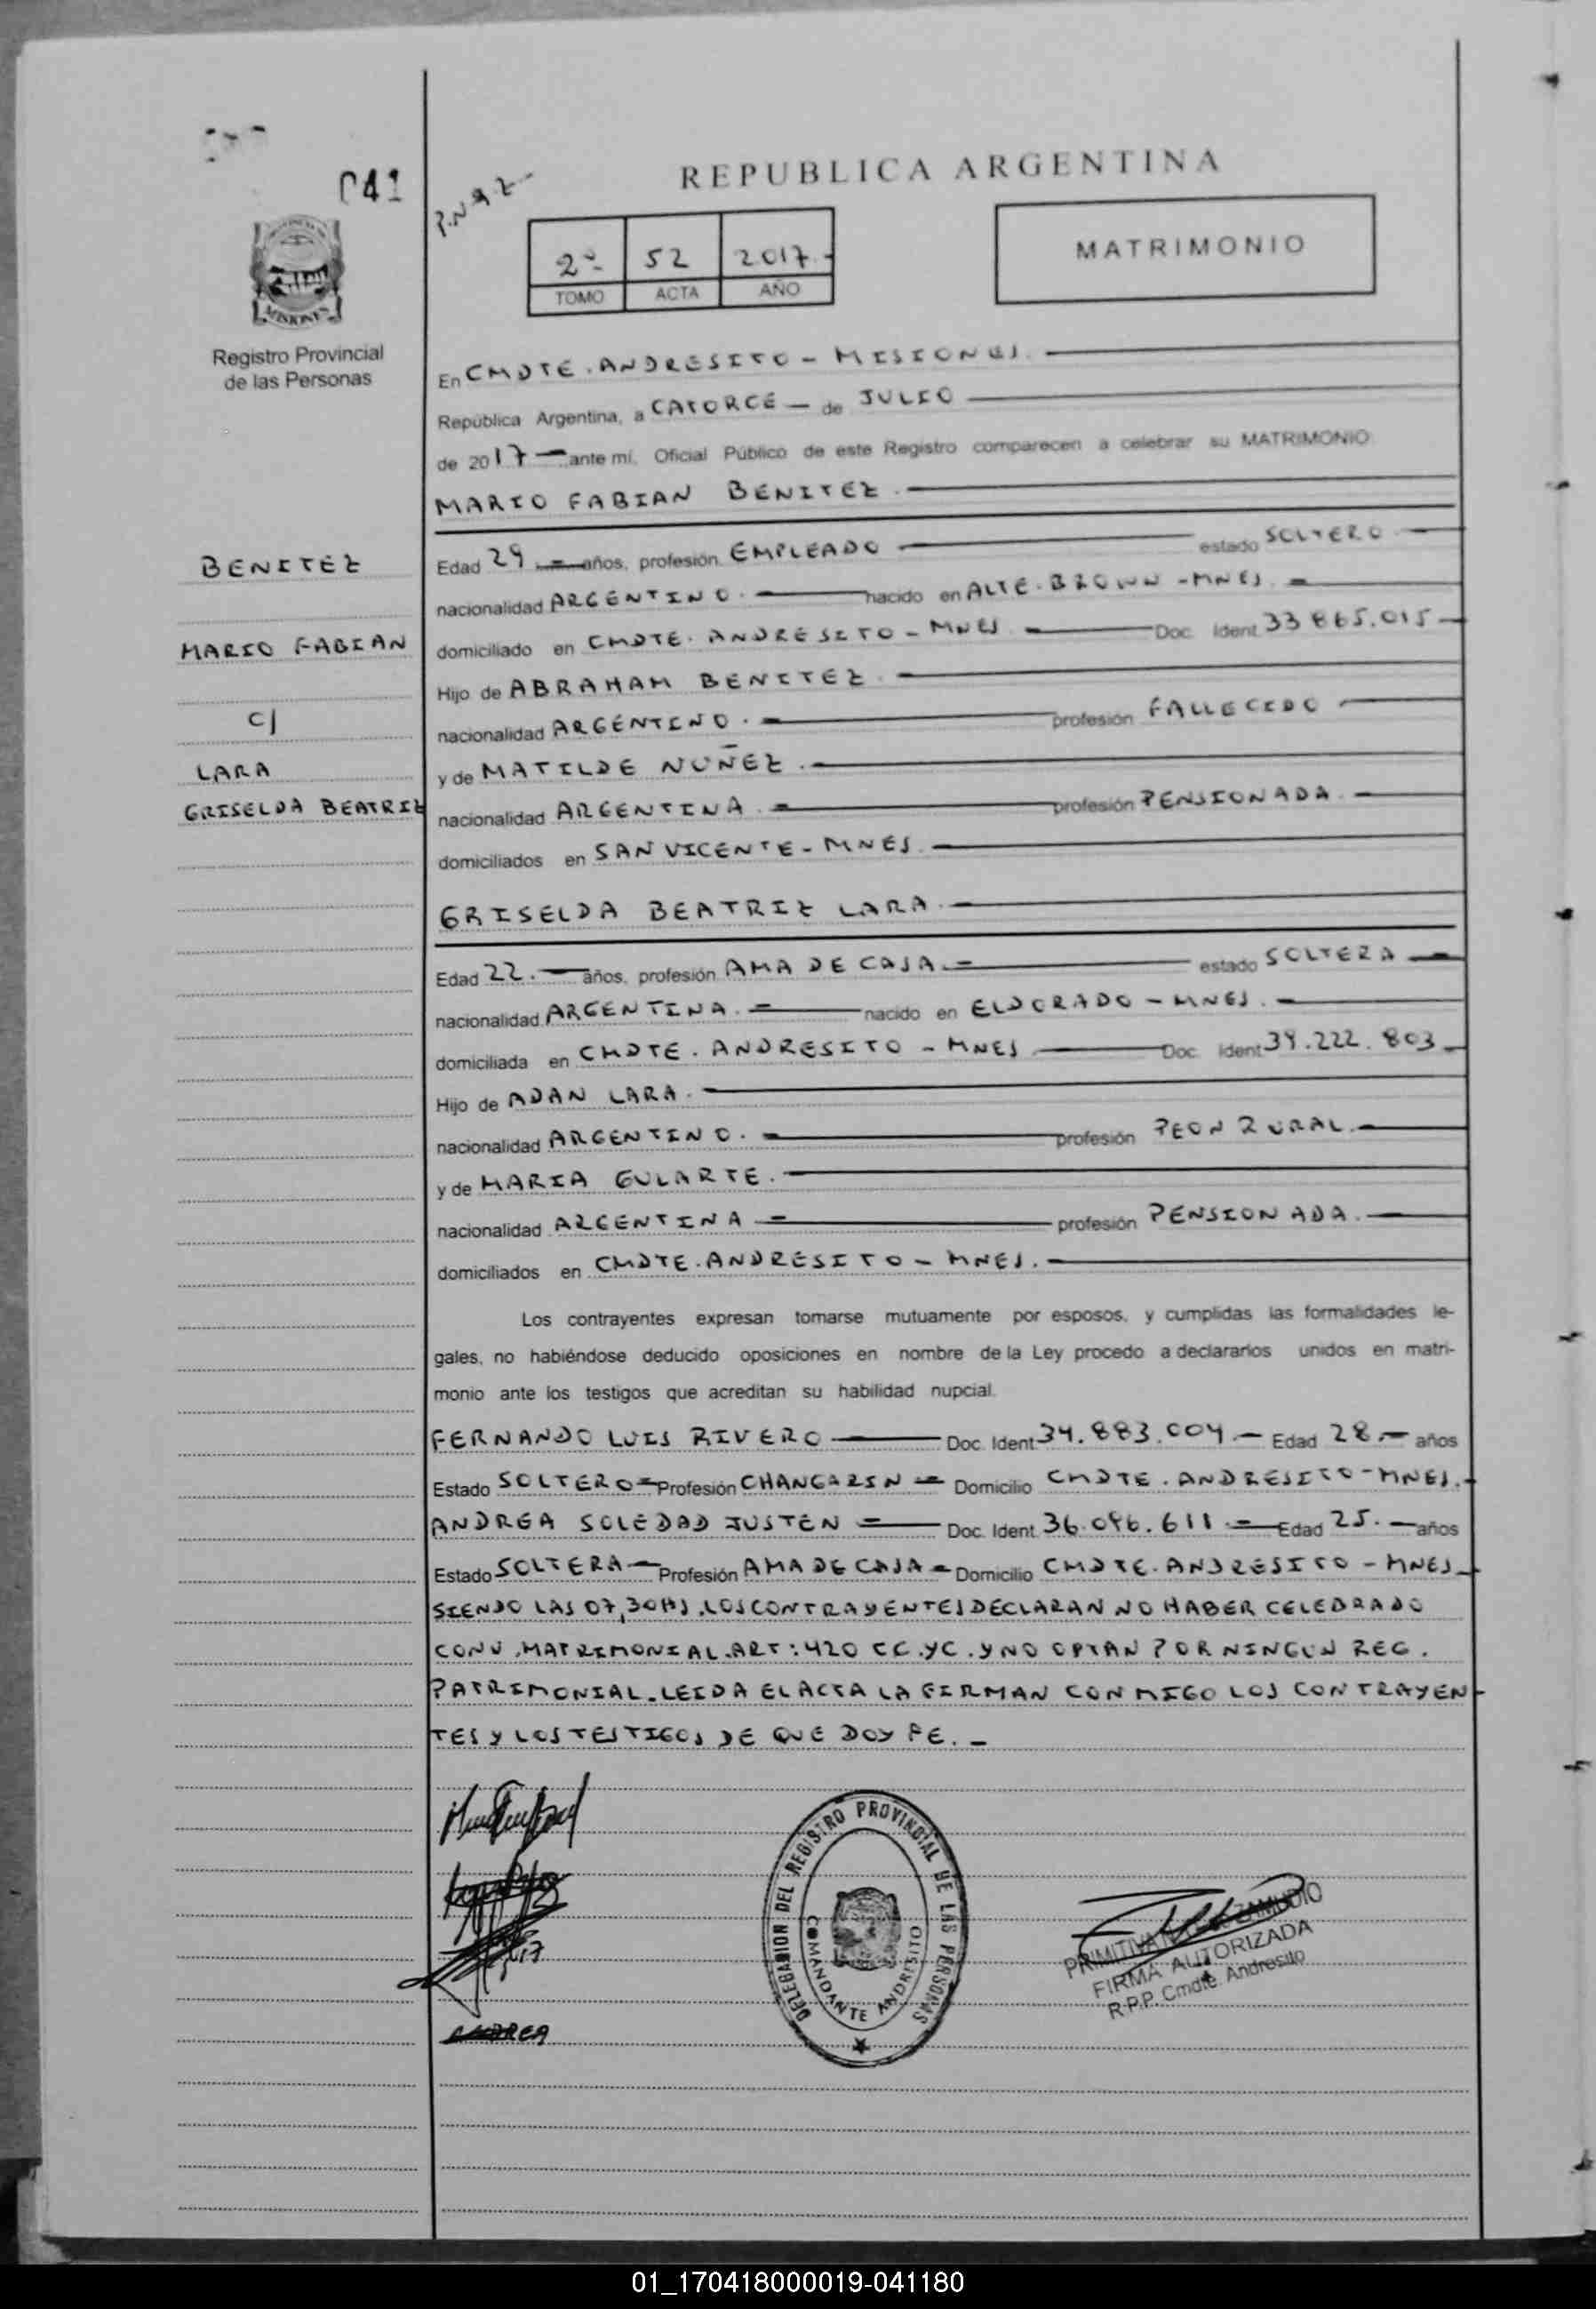 041
REPUBLICA ARGENTINA
2º 52 2017.-
TOMO ACTA AÑO
MATRIMONIO
MISIONES
Registro Provincial
de las Personas
En CMDTE. ANDRESITO - MISIONES.
República Argentina, a CATORCE - de JULIO
de 2017 - ante mí, Oficial Público de este Registro comparecen a celebrar su MATRIMONIO
MARIO FABIAN BENITEZ.
BENITEZ
MARIO FABIAN
C/
LARA
GRISELDA BEATRIZ
Edad 29 años, profesión EMPLEADO estado SOLTERO
nacionalidad ARGENTINO. nacido en ALTE. BROWN - MNES.
domiciliado en CMDTE. ANDRESITO - MNES Doc. Ident 33 865.015
Hijo de ABRAHAM BENITEZ.
nacionalidad ARGENTINO. profesión FALLECIDO
y de MATILDE NUÑEZ.
nacionalidad ARGENTINA. profesión PENSIONADA.
domiciliados en SAN VICENTE - MNES.
GRISELDA BEATRIZ LARA.
Edad 22. años, profesión AMA DE CASA. estado SOLTERA
nacionalidad ARGENTINA. nacido en ELDORADO - MNES.
domiciliada en CMDTE. ANDRESITO - MNES Doc. Ident 39.222.803
Hijo de ADAN LARA.
nacionalidad ARGENTINO. profesión PEON RURAL.
y de MARIA GULARTE.
nacionalidad ARGENTINA profesión PENSIONADA.
domiciliados en CMDTE. ANDRESITO - MNES.
Los contrayentes expresan tomarse mutuamente por esposos, y cumplidas las formalidades le-
gales, no habiéndose deducido oposiciones en nombre de la Ley procedo a declararlos unidos en matri-
monio ante los testigos que acreditan su habilidad nupcial.
FERNANDO LUIS RIVERO Doc. Ident 34.883.004.- Edad 28.- años
Estado SOLTERO Profesión CHANGARIN Domicilio CMDTE. ANDRESITO - MNES.
ANDREA SOLEDAD JUSTEN Doc. Ident. 36.096.611.- Edad 25.- años
Estado SOLTERA Profesión AMA DE CASA Domicilio CMDTE. ANDRESITO - MNES
SIENDO LAS 07,30HS. LOS CONTRAYENTES DECLARAN NO HABER CELEBRADO
CONV. MATRIMONIAL. ART: 420 CC. YC. Y NO OPTAN POR NINGUN REG.
PATRIMONIAL. LEIDA EL ACTA LA FIRMAN CONMIGO LOS CONTRAYEN
TES Y LOS TESTIGOS DE QUE DOY FE. -
DELEGACION DEL REGISTRO PROVINCIAL DE LAS PERSONAS
COMANDANTE ANDRESITO
PRIMITIVA ZAMUDIO
FIRMA AUTORIZADA
R.P.P. Cmdte. Andresito
ANDREA
01_170418000019-041180